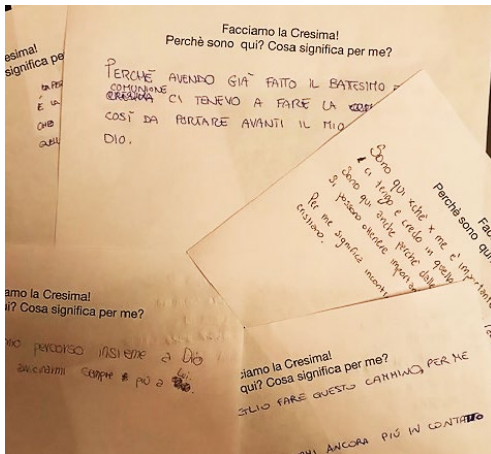 esima!
significa pe
E LA
CHE
Facciamo la Cresima!
Perchè sono qui? Cosa significa per me?
PERCHÉ AVENDO GIÀ FATTO IL BATESIMO E
COMUNIONE
CI TENEVO A FARE LA
COSÌ DA PORTARE AVANTI IL MIO
DIO.
Perchè sono qui
Sono qui xchè x me è important
ci tengo e credo in quello
Sono qui anche perché dalle
si possono ottenere importa
Per me significa incont
cristiano.
amo la Cresima!
i? Cosa significa per me?
mio percorso insieme a Dio
avvicinarmi sempre più a lui.
ciamo la Cresima!
qui? Cosa significa per me?
GLIO FARE QUESTO CAMMINO, PER ME
ANCORA PIÙ IN CONTATTO